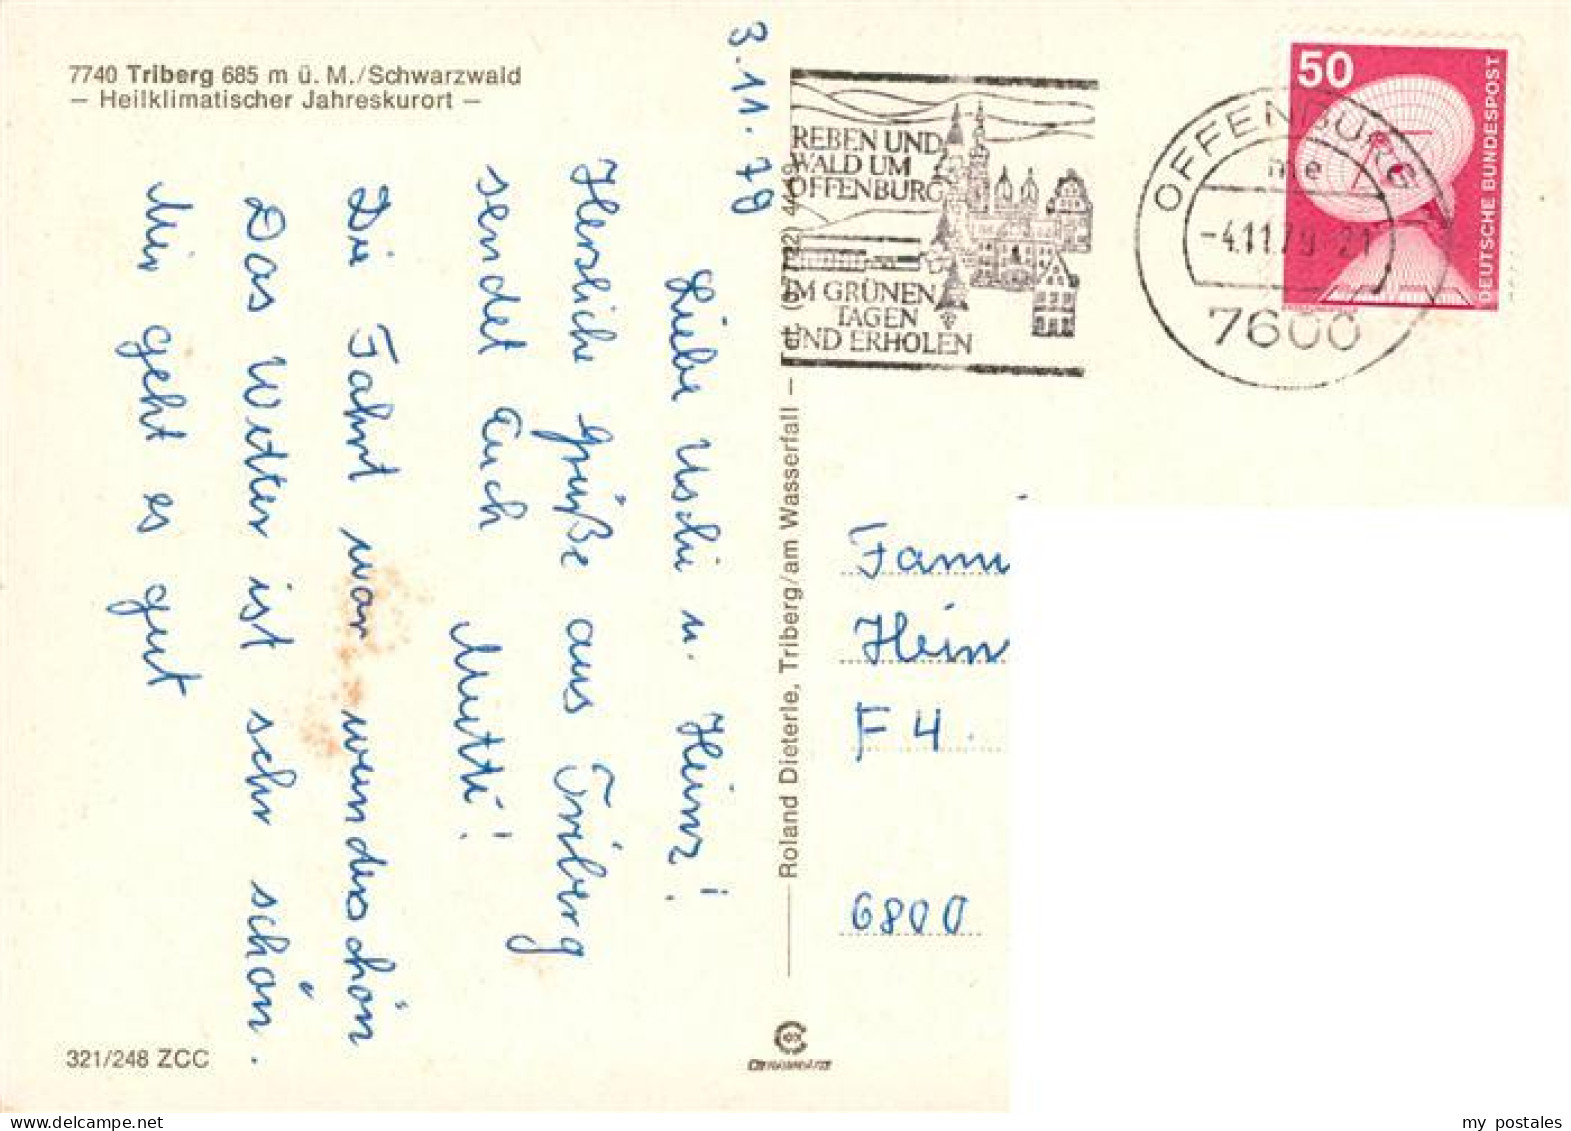 7740 Triberg 685 m ü. M./Schwarzwald
— Heilklimatischer Jahreskurort —
3.11.79
Liebe Uschi u. Heinz!
Herzliche Grüße aus Triberg
sendet Euch Mutti!
Die Fahrt war wunderschön
Das Wetter ist sehr schön.
Mir geht es gut
321/248 ZCC
Roland Dieterle, Triberg/am Wasserfall —
REBEN UND
WALD UM
OFFENBURG
IM GRÜNEN
TAGEN
UND ERHOLEN
OFFENBURG
-4.11.79-21
7600
50
DEUTSCHE BUNDESPOST
Fami
Hein
F 4
6800
my postales